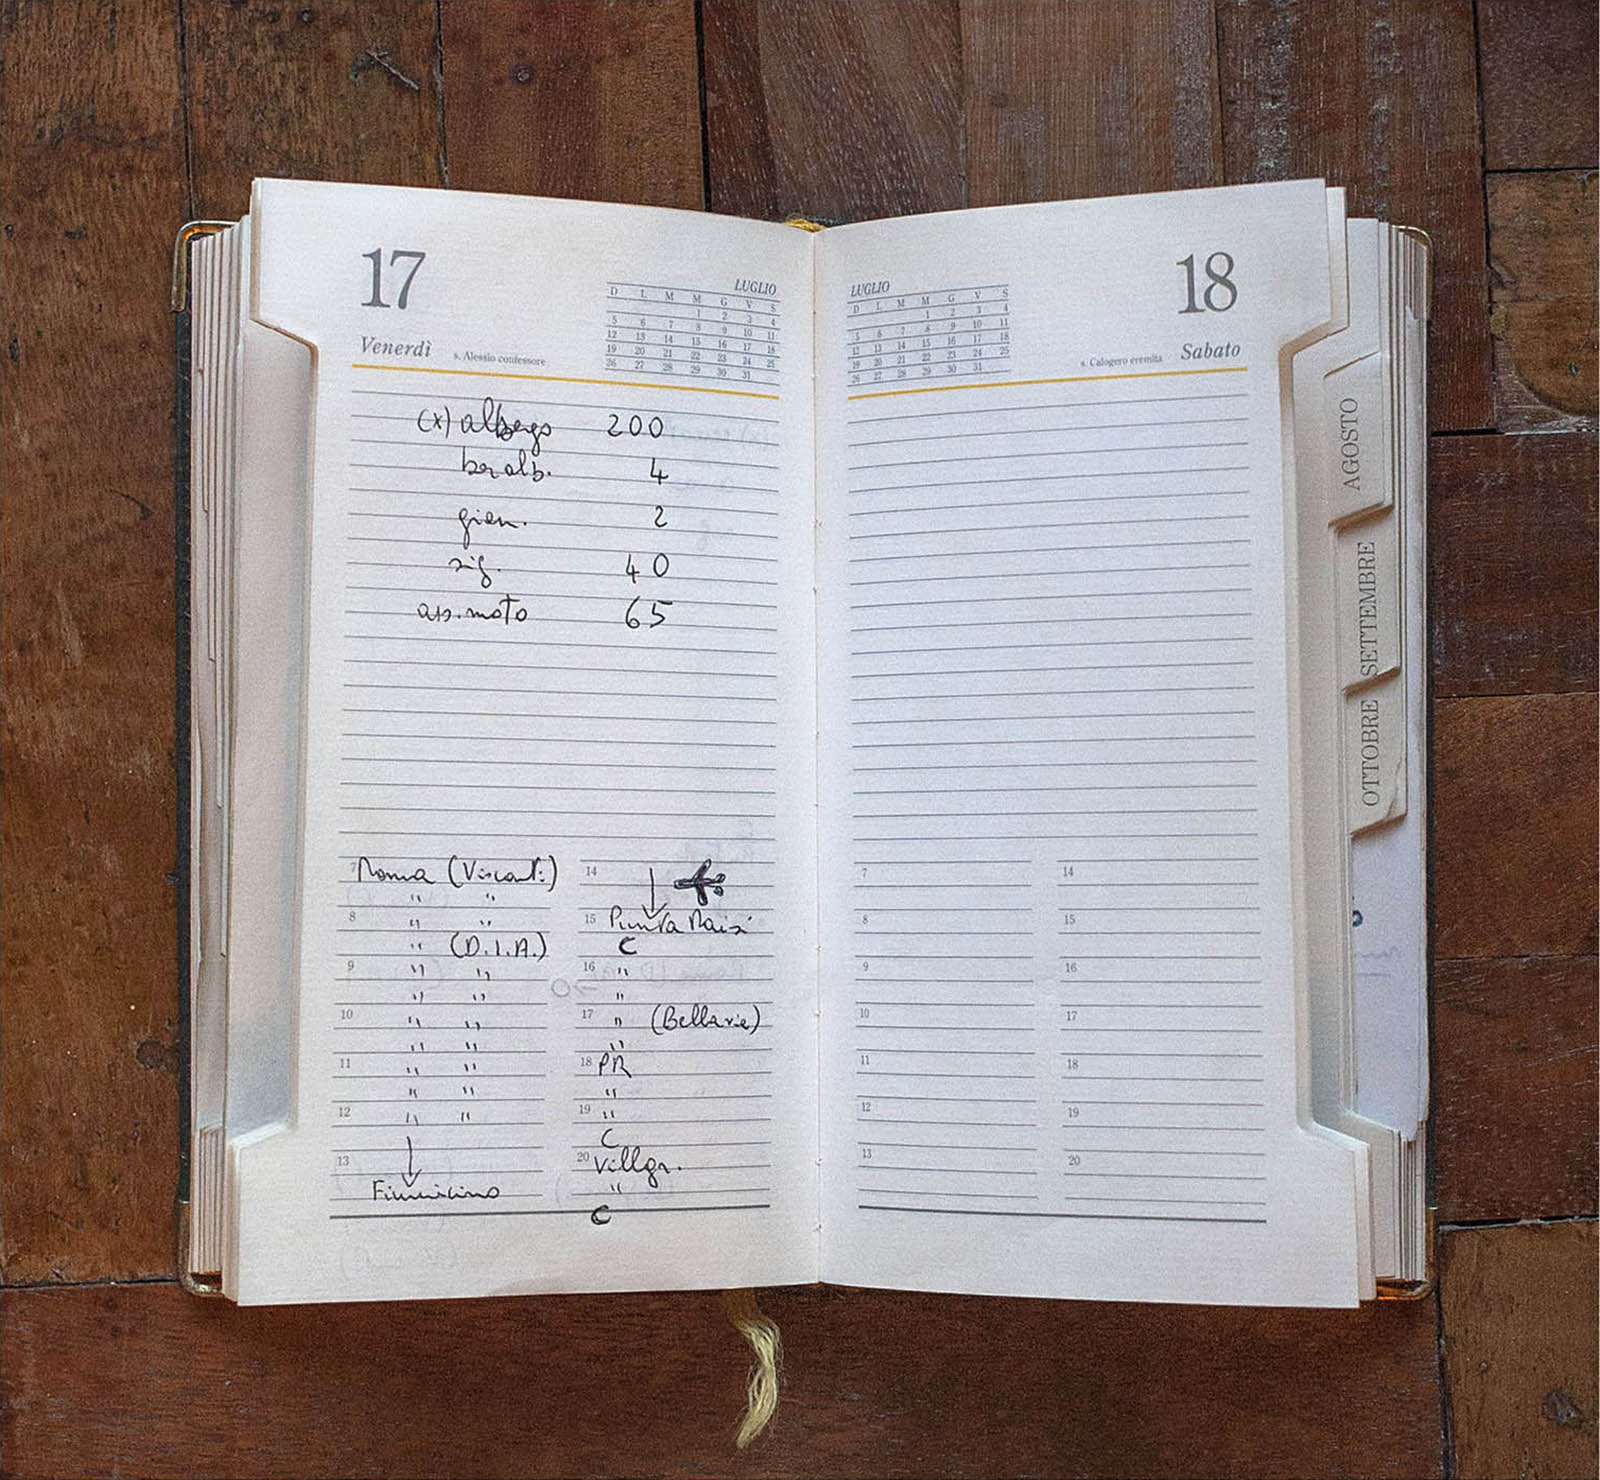 17
Venerdì s. Alessio confessore
LUGLIO
D L M M G V S
1 2 3 4
5 6 7 8 9 10 11
12 13 14 15 16 17 18
19 20 21 22 23 24 25
26 27 28 29 30 31
(x) albergo 200
bar alb. 4
gion. 2
sig. 40
ass. moto 65
7 Roma (Visconti)
" "
8 " "
" (D.I.A.)
9 " "
" "
10 " "
" "
11 " "
" "
12 " "
13
Fiumicino
14
15 Punta Raisi
C
16 "
"
17 " (Bellavia)
"
18 PR
"
19 "
C
20 Villgr.
"
C
LUGLIO
D L M M G V S
1 2 3 4
5 6 7 8 9 10 11
12 13 14 15 16 17 18
19 20 21 22 23 24 25
26 27 28 29 30 31
18
s. Calogero eremita Sabato
7
8
9
10
11
12
13
14
15
16
17
18
19
20
AGOSTO
SETTEMBRE
OTTOBRE